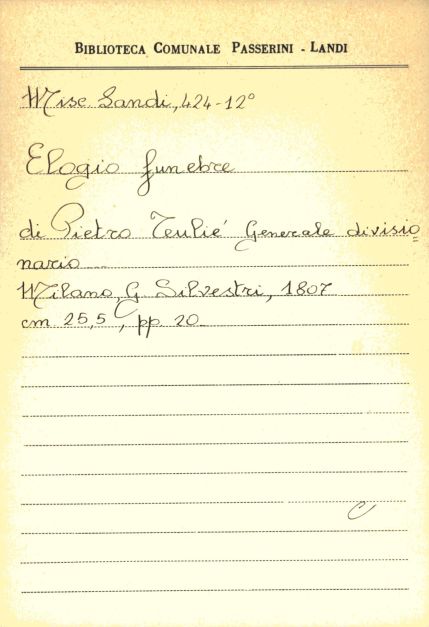 BIBLIOTECA COMUNALE PASSERINI - LANDI
Misc Landi, 424-12°
Elogio funebre
di Pietro Teulié Generale divisio=
nario
Milano, G. Silvestri, 1807
cm 25,5, pp. 20
C